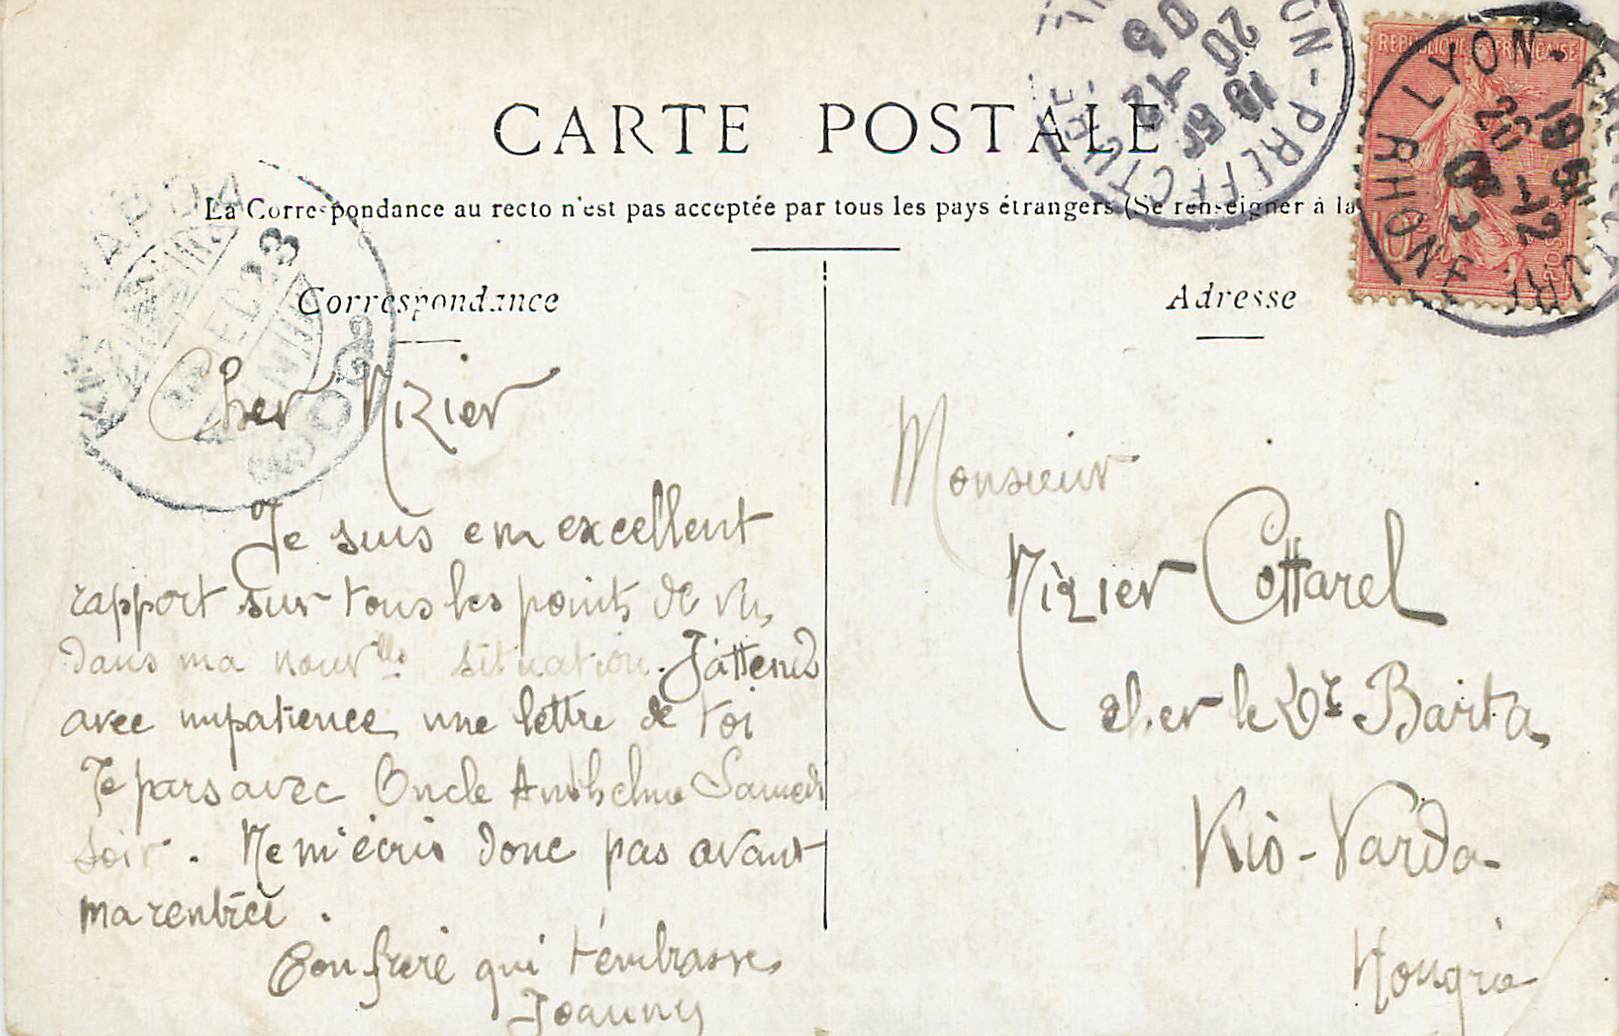 CARTE POSTALE
La Correspondance au recto n'est pas acceptée par tous les pays étrangers (Se renseigner à la
Correspondance
Adresse
REPUBLIQUE FRANÇAISE
10
POSTES
LYON-PREFECTURE
RHONE
19 50
20 -12
05
Cher Nizier
Je suis en excellent
rapport sur tous les points de vue,
dans ma nouvelle situation. J'attends
avec impatience une lettre de toi
Je pars avec Oncle Anthelme Samedi
soir. Ne m'écris donc pas avant
ma rentrée.
Ton frère qui t'embrasse
Joanny
Monsieur
Nizier Cottarel
cher le Dr Barta
Kis-Varda
Hongrie